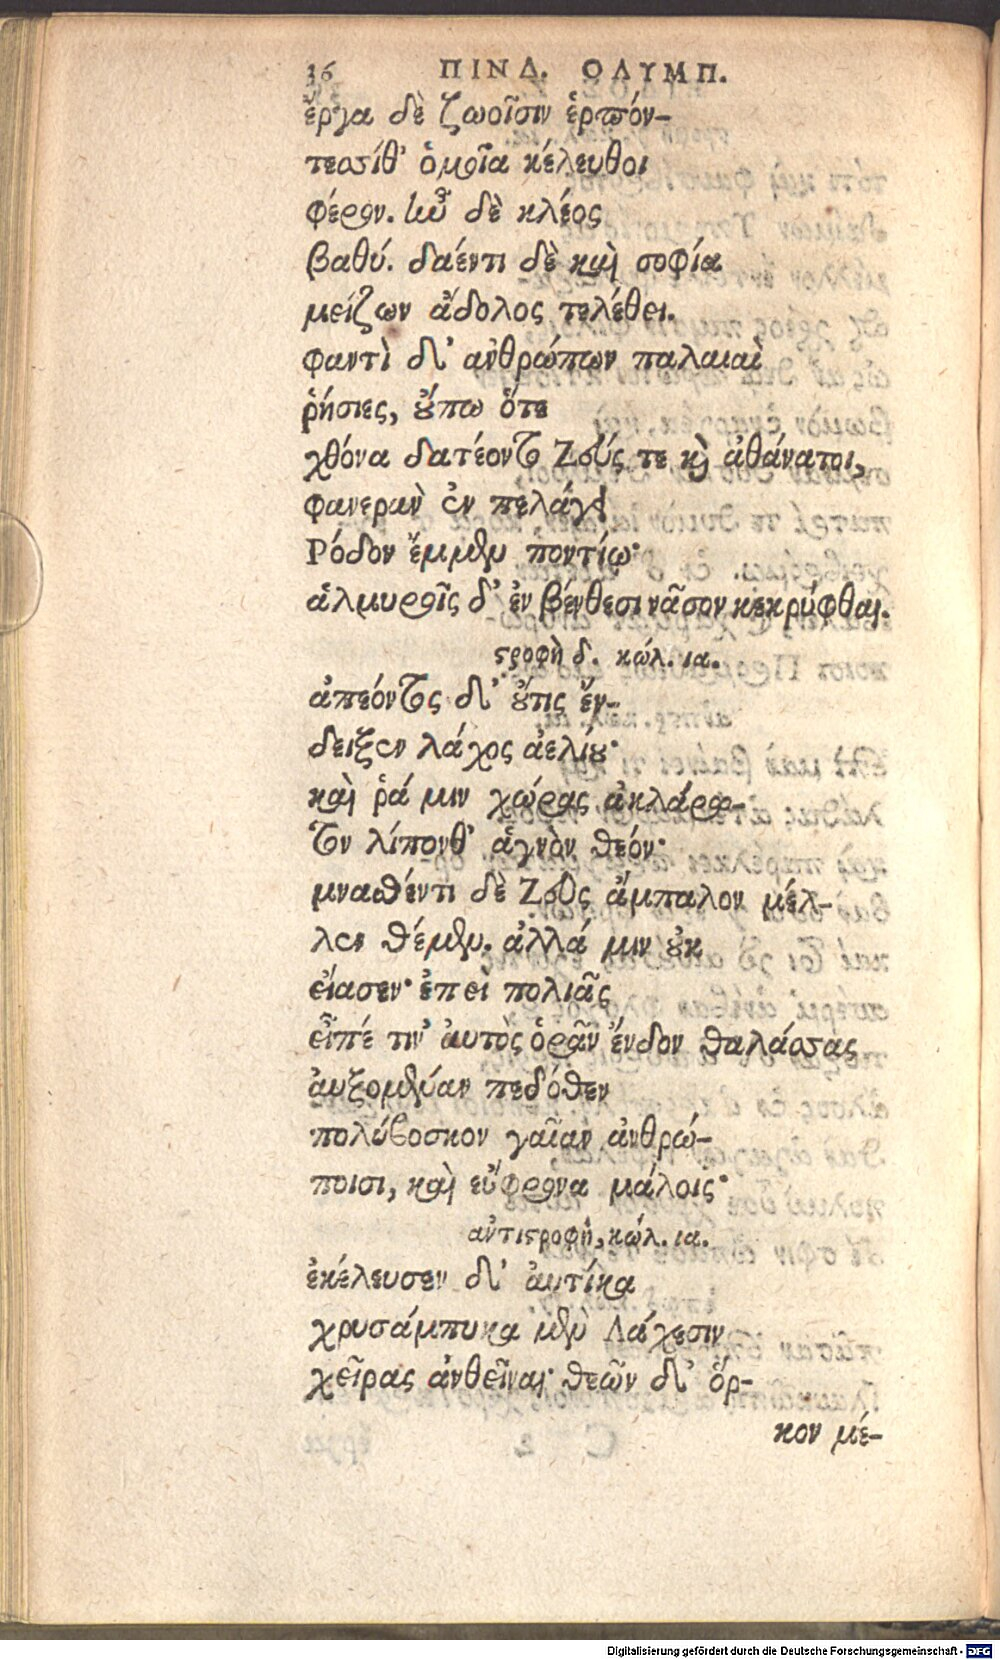 36 ΠΙΝΔ. ΟΛΥΜΠ.
ἔργα δὲ ζωοῖσιν ἑρπόν-
τεσσίθ' ὁμοῖα κέλευθοι
φέρον. ἦν δὲ κλέος
βαθύ. δαέντι δὲ καὶ σοφία
μείζων ἄδολος τελέθει.
φαντὶ δ' ἀνθρώπων παλαιαὶ
ῥήσιες, οὔπω ὅτε
χθόνα δατέοντο Ζεύς τε καὶ ἀθάνατοι,
φανερὰν ἐν πελάγει
Ῥόδον ἔμμεν ποντίῳ·
ἁλμυροῖς δ' ἐν βένθεσι νᾶσον κεκρύφθαι.
στροφὴ δ. κώλ. ια.
ἀπεόντος δ' οὔτις ἔν-
δειξεν λάχος ἀελίου·
καὶ ῥά μιν χώρας ἀκλάρω-
τον λίπονθ' ἁγνὸν θεόν·
μναθέντι δὲ Ζεὺς ἄμπαλον μέλ-
λεν θέμεν. ἀλλά μιν οὐκ
εἴασεν· ἐπεὶ πολιᾶς
εἶπέ τιν' αὐτὸς ὁρᾶν ἔνδον θαλάσσας
αὐξομέναν πεδόθεν
πολύβοσκον γαῖαν ἀνθρώ-
ποισι, καὶ εὔφρονα μάλοις·
ἀντιστροφή, κώλ. ια.
ἐκέλευσεν δ' αὐτίκα
χρυσάμπυκα μὲν Λάχεσιν
χεῖρας ἀνθεῖναι· θεῶν δ' ὅρ-
κον μέ-
Digitalisierung gefördert durch die Deutsche Forschungsgemeinschaft - DFG